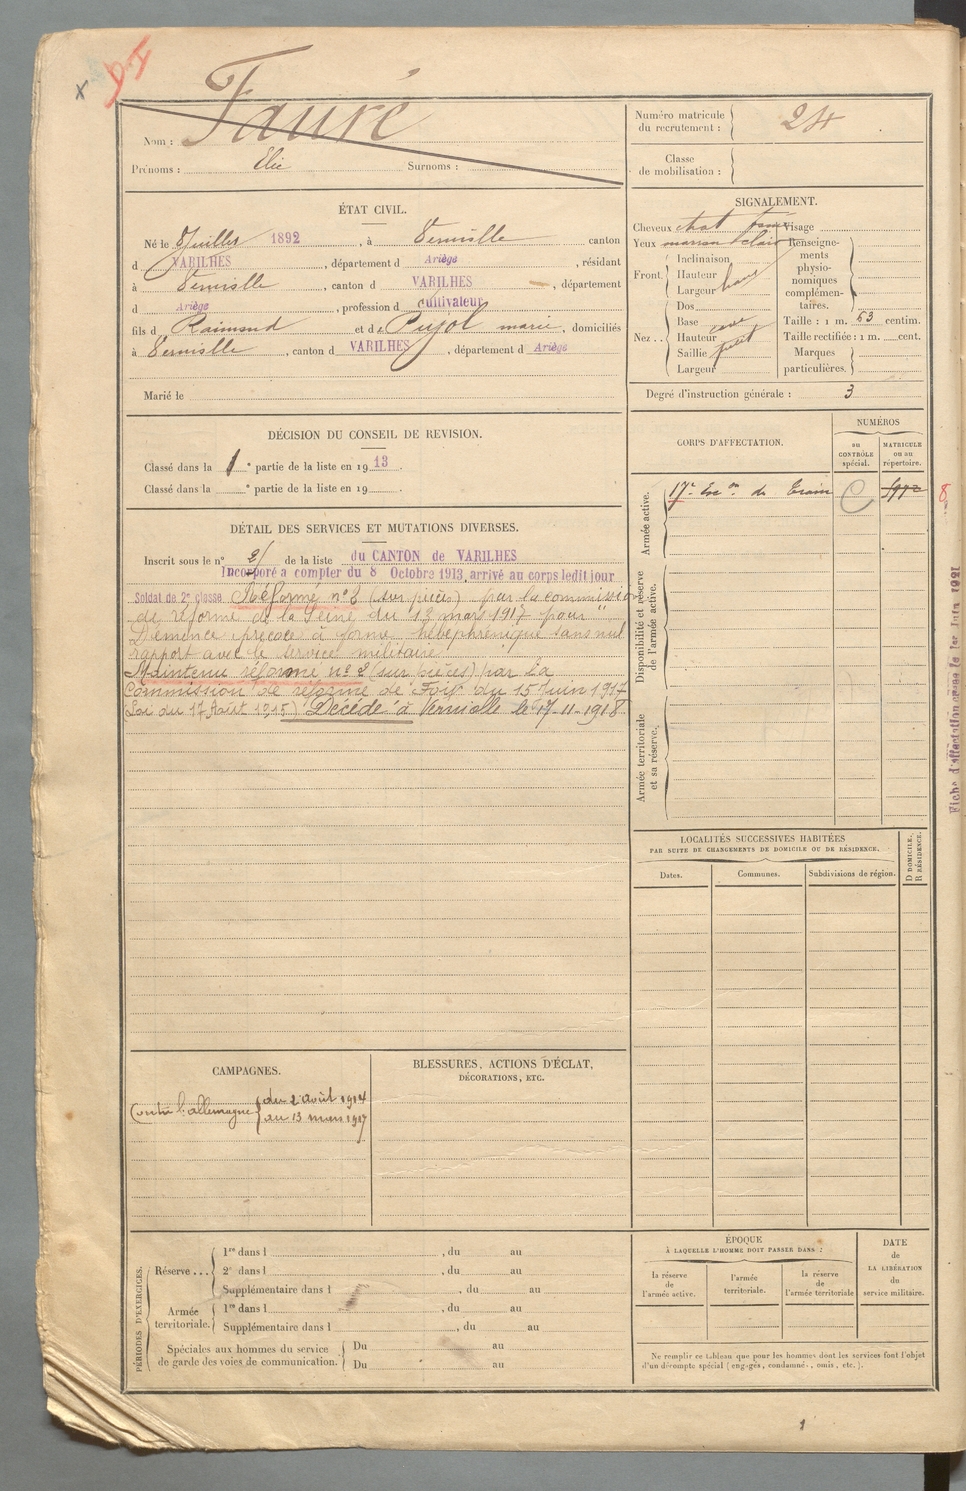 Fauré
Nom :
Prénoms : Elie Surnoms :
Numéro matricule
du recrutement : 24
Classe
de mobilisation :
ÉTAT CIVIL.
Né le 8 juillet 1892, à Verniolle canton
d VARILHES, département d Ariège, résidant
à Verniolle, canton d VARILHES, département
d Ariège, profession d cultivateur
fils d Raimond et de Pujol marie, domiciliés
à Verniolle, canton d VARILHES, département d Ariège
Marié le
SIGNALEMENT.
Cheveux chat foncé Visage
Yeux marron clair
Front. Inclinaison
Hauteur
Largeur
Nez .. Dos
Base
Hauteur
Saillie
Largeur
Renseigne-
ments
physio-
nomiques
complémen-
taires.
Taille : 1 m. 63 centim.
Taille rectifiée : 1 m. cent.
Marques
particulières.
Degré d'instruction générale : 3
DÉCISION DU CONSEIL DE REVISION.
Classé dans la 1e partie de la liste en 1913.
Classé dans la e partie de la liste en 19
CORPS D'AFFECTATION.
NUMÉROS
au
CONTRÔLE
spécial.
MATRICULE
ou au
répertoire.
Armée active.
17e Esc on du Train
8
Disponibilité et réserve
de l'armée active.
Armée territoriale
et sa réserve.
DÉTAIL DES SERVICES ET MUTATIONS DIVERSES.
Inscrit sous le n° de la liste du CANTON de VARILHES
Incorporé a compter du 8 Octobre 1913, arrivé au corps ledit jour
Soldat de 2e classe Réformé n°2 (sur pièces) par la commission
de réforme de la Seine du 13 mars 1917 pour "
Démence précoce à forme hébéphrénique sans nul
rapport avec le service militaire"
Maintenu réformé n° 2 (sur pièces) par la
Commission de réforme de Foix du 15 Juin 1917
(Loi du 17 Août 1915) Décédé à Verniolle le 17-11-1918
Fiche d'affectation
LOCALITÉS SUCCESSIVES HABITÉES
PAR SUITE DE CHANGEMENTS DE DOMICILE OU DE RÉSIDENCE.
D DOMICILE.
R RÉSIDENCE.
Dates. Communes. Subdivisions de région.
CAMPAGNES.
Contre l'allemagne du 2 août 1914
au 13 mars 1917
BLESSURES, ACTIONS D'ÉCLAT,
DÉCORATIONS, ETC.
PÉRIODES D'EXERCICES.
Réserve ... 1re dans l , du au
2e dans l , du au
Supplémentaire dans l , du au
Armée
territoriale. 1re dans l , du au
Supplémentaire dans l , du au
Spéciales aux hommes du service
de garde des voies de communication. Du au
Du au
ÉPOQUE
À LAQUELLE L'HOMME DOIT PASSER DANS :
la réserve
de
l'armée active.
l'armée
territoriale.
la réserve
de
l'armée territoriale
DATE
de
LA LIBÉRATION
du
service militaire.
Ne remplir ce tableau que pour les hommes dont les services font l'objet
d'un décompte spécial (engagés, condamné., omis, etc.).
1